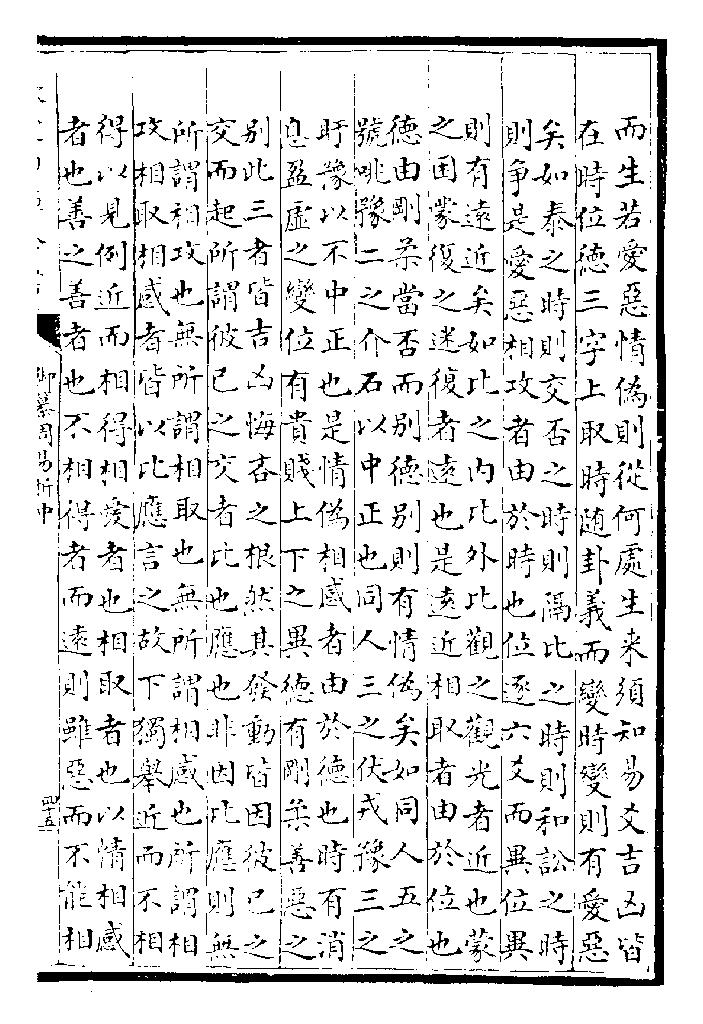 而生若愛惡情偽則從何處生来須知易爻吉凶皆
在時位徳三字上取時随卦義而變時變則有愛惡
矣如泰之時則交否之時則隔比之時則和訟之時
則争是愛惡相攻者由於時也位逐六爻而異位異
則有遠近矣如比之内比外比觀之觀光者近也蒙
之困蒙復之迷復者遠也是遠近相取者由於位也
德由剛柔當否而别德别則有情偽矣如同人五之
號咷豫二之介石以中正也同人三之伏戎豫三之
盱豫以不中正也是情偽相感者由於德也時有消
息盈虛之變位有貴賤上下之異德有剛柔善惡之
别此三者皆吉凶悔吝之根然其發動皆因彼已之
交而起所謂彼已之交者比也應也非因比應則無
所謂相攻也無所謂相取也無所謂相感也所謂相
攻相取相感者皆以比應言之故下獨舉近而不相
得以見例近而相得相愛者也相取者也以情相感
者也善之善者也不相得者而遠則雖惡而不能相
御纂周易折中
四十五